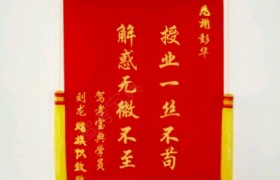 感谢彭华
授业一丝不苟
解惑无微不至
驾考宝典学员
刘龙